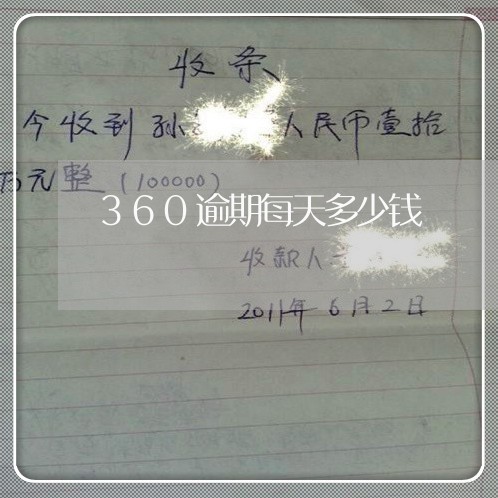 收条
今收到孙 人民币壹拾
万元整（100000）
360逾期每天多少钱
收款人
2011年6月2日